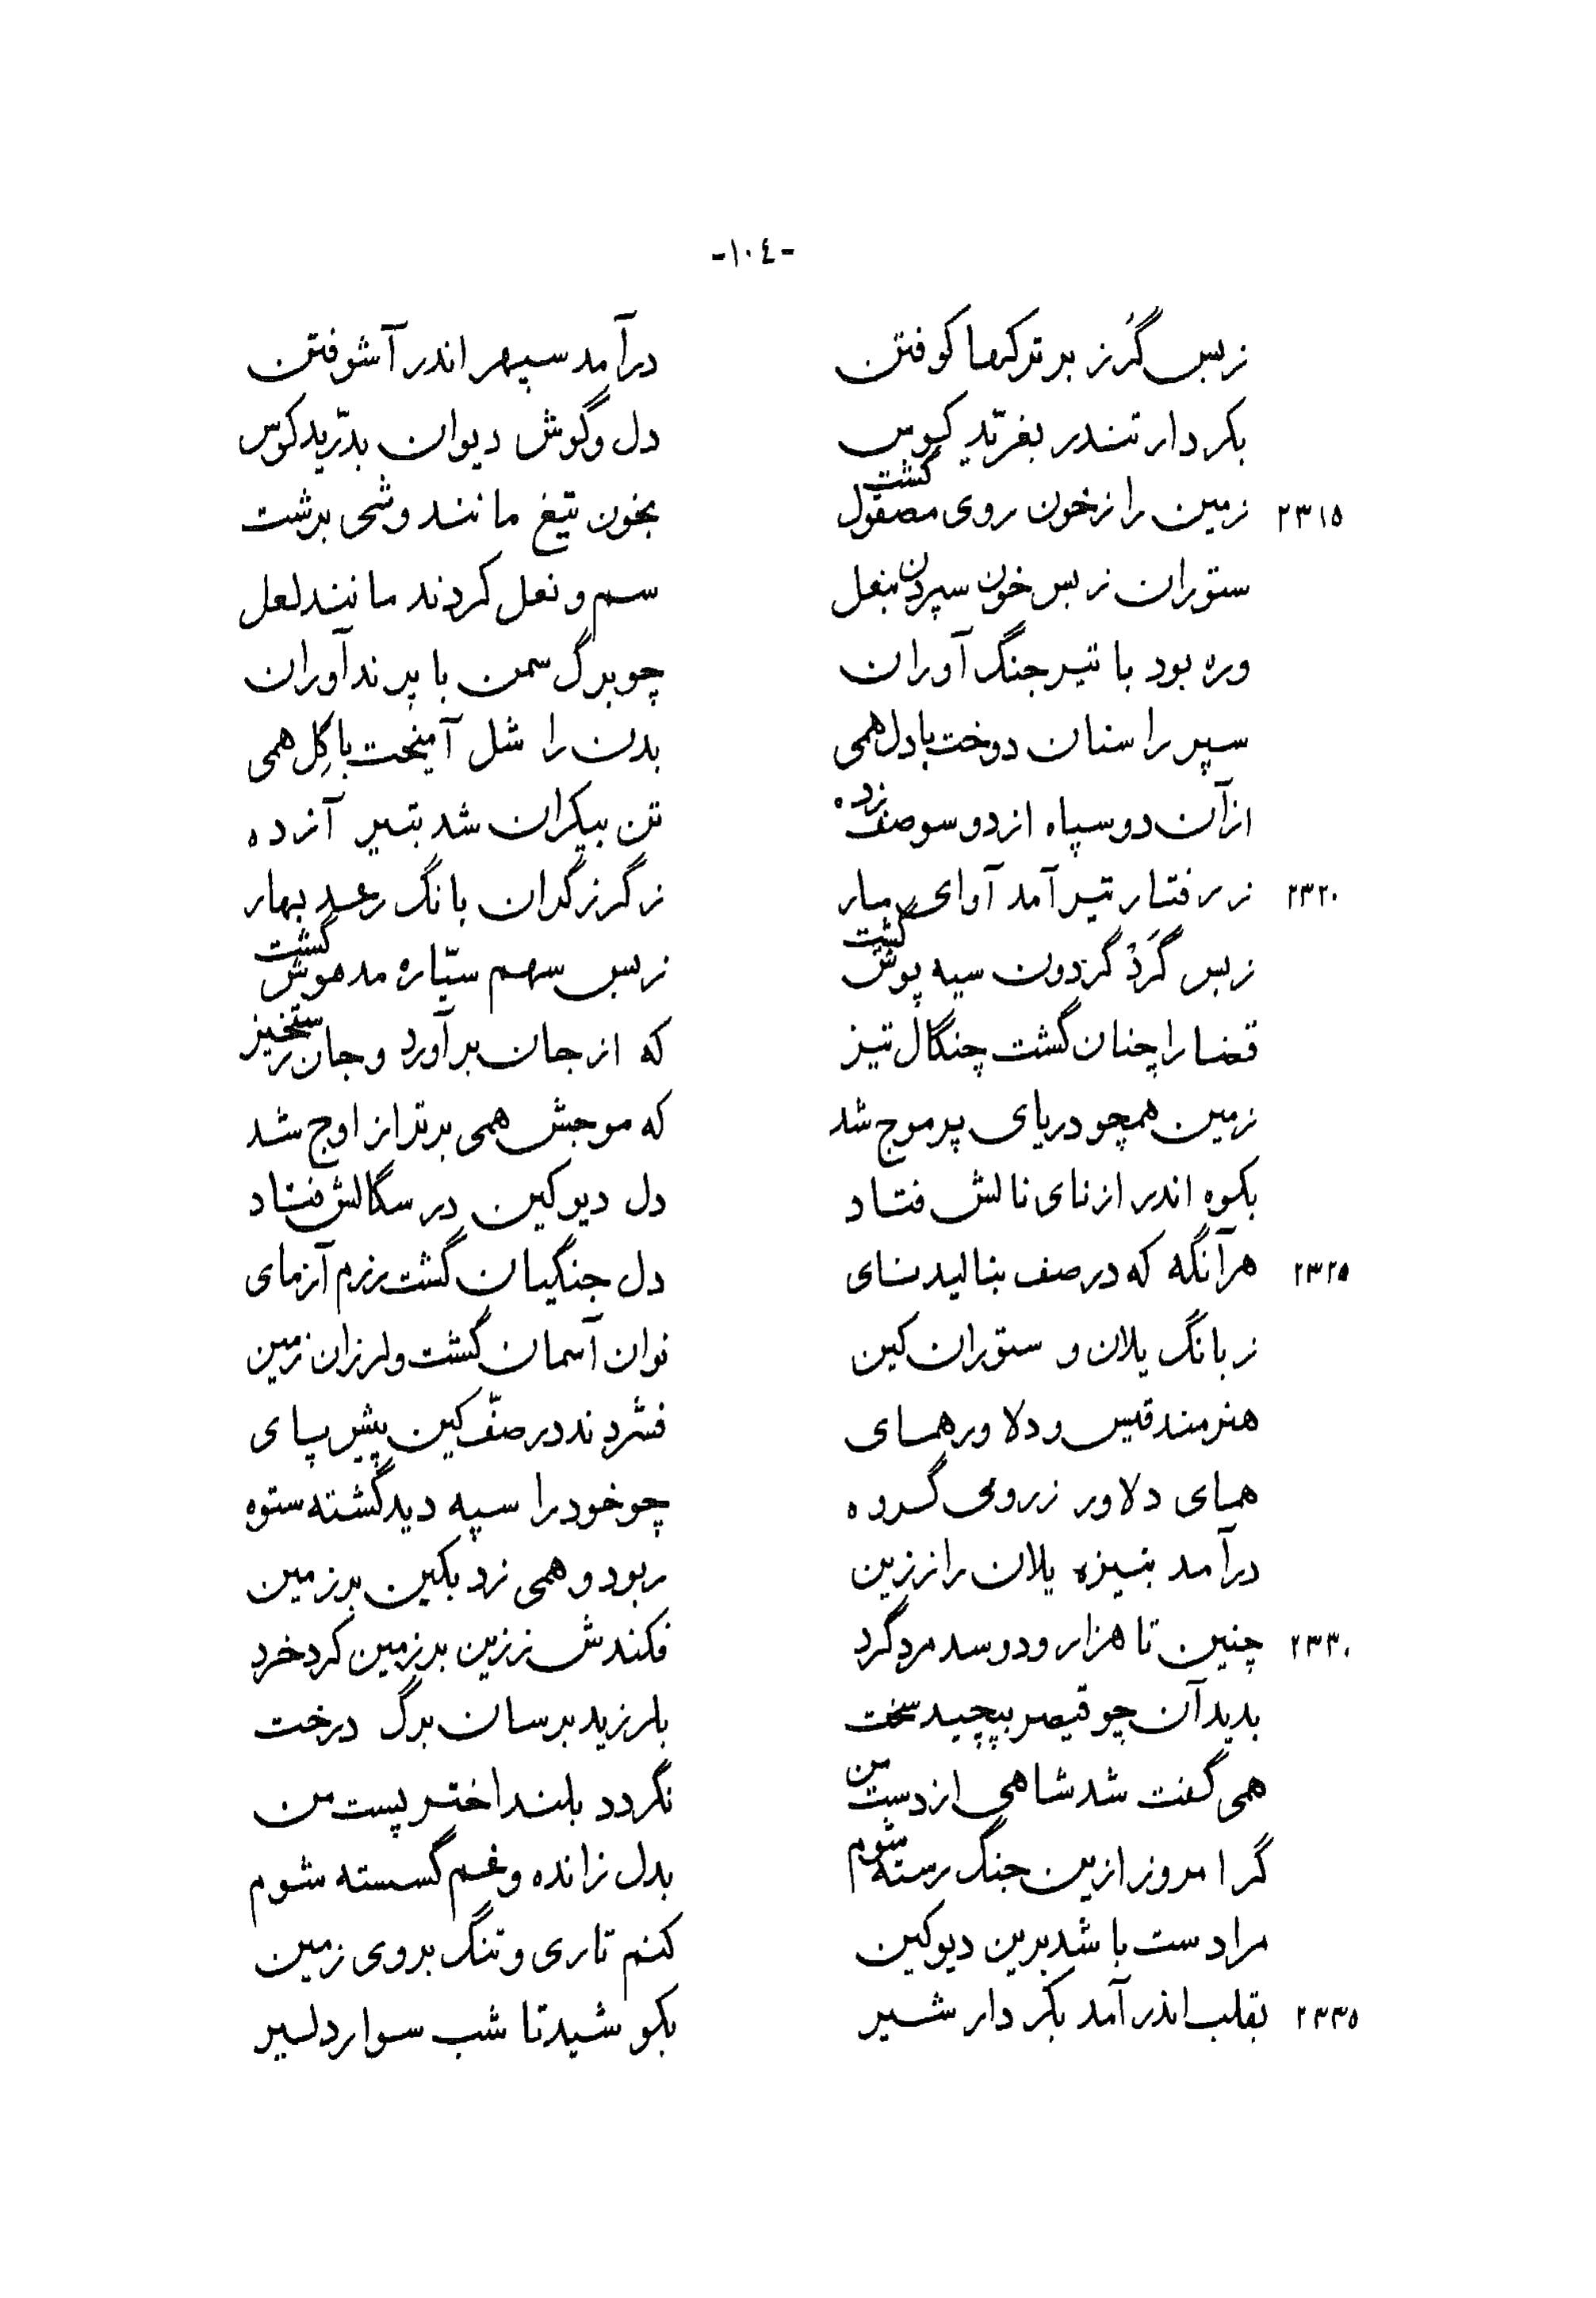 -١٠٤-
زبس گُرز بر ترکها کوفتن درآمد سپهر اندر آشوفتن
بکردار تندر بغرّید کوس دل و گوش دیوان بدرّید کوس
٢٣١٥ زمین را زخون روی مصقول گشت بخون تیغ مانند وشی برشت
ستوران زبس خون سپردن بنعل سم و نعل کردند مانند لعل
وره بود با تیر جنگ آوران چو برگ سمن با پرندآوران
سپر را سنان دوخت با دل همی بدن را شل آمیخت با گِل همی
ازآن دو سپاه از دو سو صف زده تن بیکران شد بتیر آژده
٢٣٢٠ زرفتار تیر آمد آوای مار زگرز گران بانگ رعد بهار
زبس گَرْد گردون سیه پوش گشت زبس سهم سیّاره مدهوش گشت
قضا را چنان گشت چنگال تیز که از جان برآورد و جان رستخیز
زمین همچو دریای پر موج شد که موجش همی برتر از اوج شد
بکوه اندر از نای نالش فتاد دل دیو کین در سگالش فتاد
٢٣٢٥ هرآنگه که در صف بنالید نای دل جنگیان گشت رزم آزمای
زبانگ یلان و ستوران کین نوان آسمان گشت و لرزان زمین
هنرمند قیس و دلاور همای فشردند در صفّ کین پیش پای
همای دلاور زرومی گروه چو خود را سپه دید گشته ستوه
درآمد بنیزه یلان را ززین ربود و همی زد بکین بر زمین
٢٣٣٠ چنین تا هزار و دوسد مرد گرد فکندش ززین بر زمین کرد خرد
بدید آن چو قیصر بپیچید سخت بلرزید برسان برگ درخت
همی گفت شد شاهی از دست من نگردد بلند اختر پست من
گر امروز ازین جنگ رسته شوم بدل زانده و غم گسسته شوم
مرا دست باشد برین دیو کین کنم تاری و تنگ بروی زمین
٢٣٣٥ بقلب اندر آمد بکردار شیر بکوشید تا شب سوار دلیر